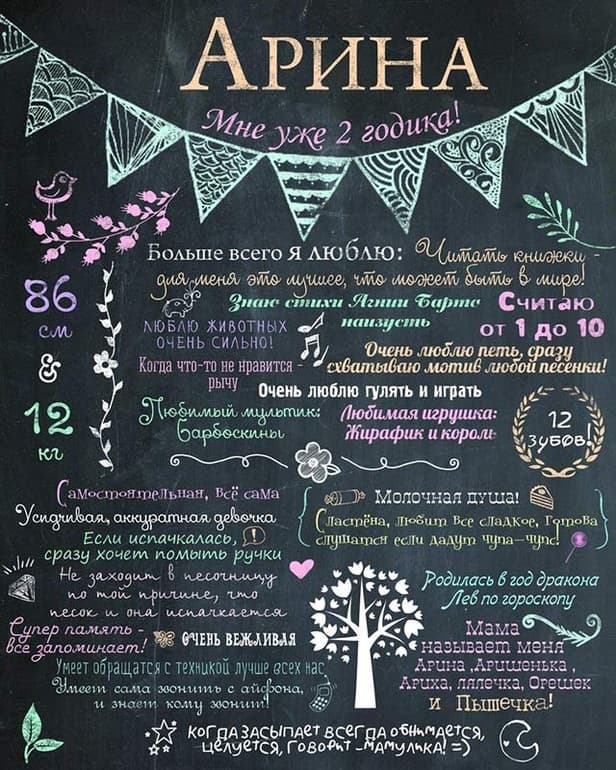 Арина
Мне уже 2 годика!
Больше всего я люблю: Читать книжки -
для меня это лучшее, что может быть в мире!
86
см
&
12
кг
Знаю стихи Агнии Барто
наизусть
Считаю
от 1 до 10
люблю животных
очень сильно!
Когда что-то не нравится -
рычу
Очень люблю петь, сразу
схватываю мотив любой песенки!
Очень люблю гулять и играть
Любимый мультик:
Барбоскины
Любимая игрушка:
Жирафик и король
12
зубов!
Самостоятельная, всё сама
Усидчивая, аккуратная девочка
Если испачкалась,
сразу хочет помыть ручки
Не заходит в песочницу
по той причине, что
песок и она испачкается
Супер память -
все запоминает!
очень вежливая
Умеет обращатся с техникой лучше всех нас
Умеет сама звонить с айфона,
и знает кому звонит!
Молочная душа!
Сластёна, любит все сладкое, готова
слушатся если дадут чупа-чупс!
Родилась в год дракона
Лев по гороскопу
Мама
называет меня
Арина ,Аришенька ,
Ариха, лялечка, Орешек
и Пышечка!
когда засыпает всегда обнимается,
целуется, говорит -мамулика! =)